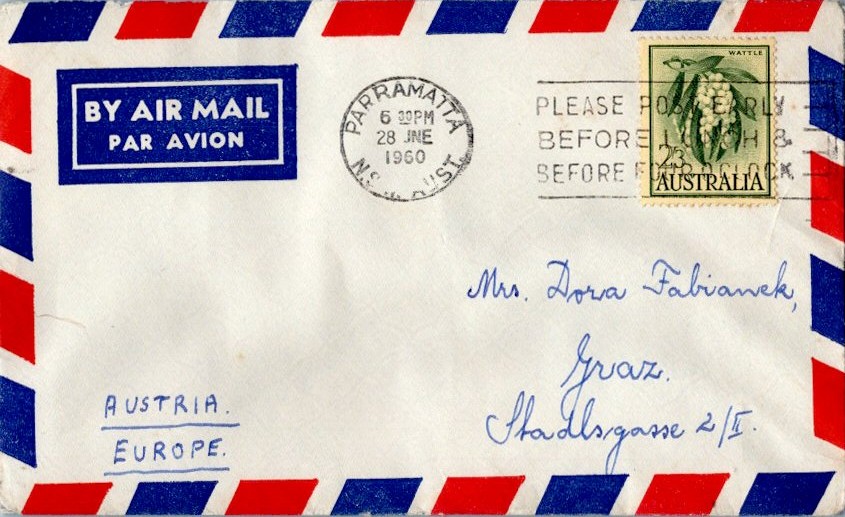 BY AIR MAIL
PAR AVION
PARRAMATTA
6 30PM
28 JNE
1960
N.S.W. AUST.
PLEASE POST EARLY
BEFORE LUNCH &
BEFORE FOUR O'CLOCK
WATTLE
2/3
AUSTRALIA
Mrs. Dora Fabianek,
Graz.
Stadlsgasse 2/II.
AUSTRIA.
EUROPE.